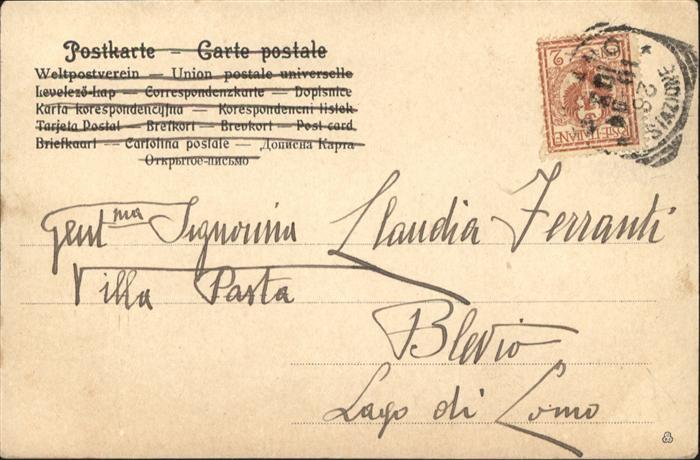 Postkarte – Carte postale
Weltpostverein — Union postale universelle
Levelező-Lap — Correspondenzkarte — Dopisnice
Karta korespondencyjna — Korespondencni listek
Tarjeta Postal — Brefkort — Brevkort — Post card
Briefkaart — Cartolina postale — Дописна Карта
Открытое-письмо
2
POSTE ITALIANE
STAZIONE
Gent.ma Signorina Claudia Ferranti
Villa Pasta
Blevio
Lago di Como